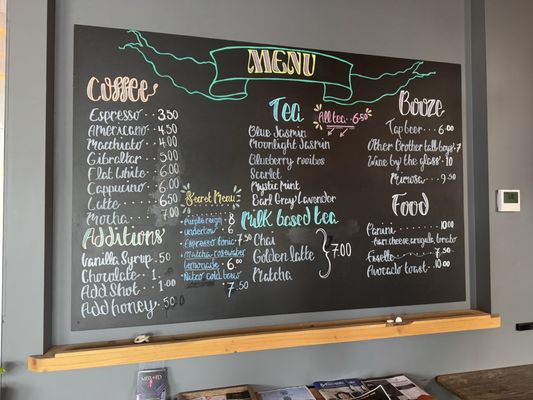 MENU
Coffee
Espresso · · 3.50
Americano · · 4.50
Macchiato · · 4.00
Gibraltar · · · 5.00
Flat White · · 6.00
Cappucino · · 6.00
Latte · · · 6.50
Mocha · · · 7.00
Additions
Vanilla Syrup · .50
Chocolate · · 1.00
Add Shot · · · 1.00
Add honey · · .50
Secret Menu
Purple reign · · 8
undertow · · 6.50
Espresso tonic · 7.50
Matcha rosewater
Lemonade · · 6.00
Nitro cold brew
7.50
Tea
All tea · 6.00
Blue Jasmin
Moonlight Jasmin
Blueberry rooibos
Scarlet
Mystic Mint
Earl Gray Lavender
Milk based tea
Chai
Golden latte
Matcha
7.00
Booze
Tap beer · · 6.00
Other Brother tall boys · 7
Wine by the glass · · 10
Mimosa · · · 9.50
Food
Panini · · · · 10.00
ham, cheese, arugula, tomato
7.50
Avocado toast · · 10.00